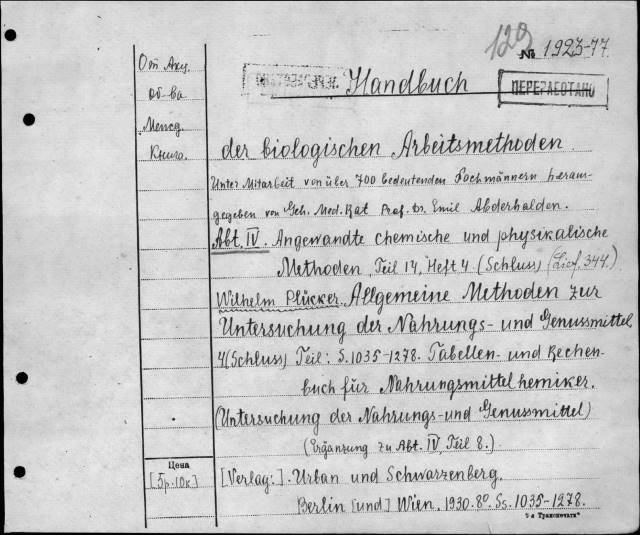 129
№ 1923-77
От Акц.
об-ва
Межд.
Книга.
Handbuch
ПЕРЕРАБОТАНО
der biologischen Arbeitsmethoden.
Unter Mitarbeit von über 700 bedeutenden Fachmännern heraus-
gegeben von Geh. Med. Rat Prof. Dr. Emil Abderhalden.
Abt. IV. Angewandte chemische und physikalische
Methoden, Teil 14, Heft 4 (Schluss) (Lief. 344.)
Wilhelm Plücker. Allgemeine Methoden zur
Untersuchung der Nahrungs- und Genussmittel
4 (Schluss) Teil: S. 1035-1278. Tabellen- und Rechen-
buch für Nahrungsmittelhemiker.
(Untersuchung der Nahrungs- und Genussmittel)
(Ergänzung zu Abt. IV, Teil 8.)
Цена
[5р.10к]
[Verlag:]. Urban und Schwarzenberg.
Berlin [und] Wien. 1930. 8°. Ss. 1035-1278.
7-я Транспечать"